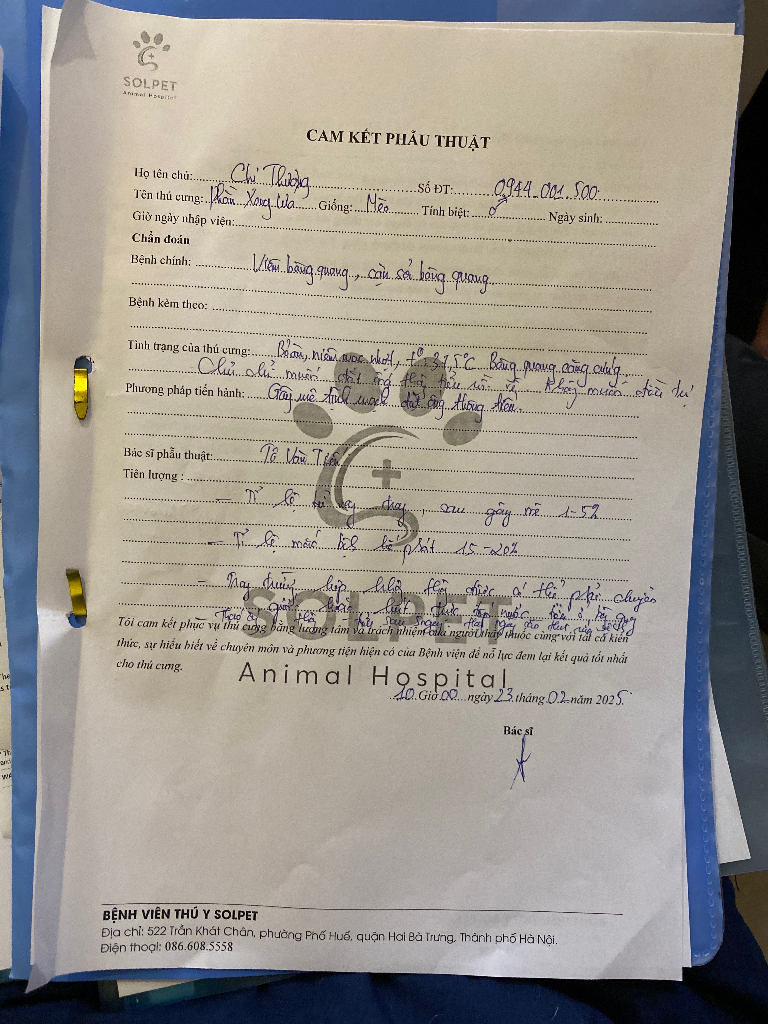 SOLPET
Animal Hospital
CAM KẾT PHẪU THUẬT
Họ tên chủ: Chị Thương Số ĐT: 0944.001.500
Tên thú cưng: Giống: Mèo Tính biệt: ♂ Ngày sinh:
Giờ ngày nhập viện:
Chẩn đoán
Bệnh chính: Viêm bàng quang, cặn sỏi bàng quang
Bệnh kèm theo:
Tình trạng của thú cưng: niêm mạc nhợt, t° 37,5°C Bàng quang căng cứng
Chủ chỉ muốn đặt ống thông tiểu rồi về không muốn điều trị
Phương pháp tiến hành: Gây mê tĩnh mạch đặt ống thông tiểu
Bác sĩ phẫu thuật: Tô Văn
Tiên lượng :
- Tỉ lệ sau gây mê 1-5%
- Tỉ lệ tái phát 15-20%
- trường hợp có thể phải chuyển
Tôi cam kết phục vụ thú cưng bằng lương tâm và trách nhiệm của người thầy thuốc cùng với tất cả kiến
thức, sự hiểu biết về chuyên môn và phương tiện hiện có của Bệnh viện để nỗ lực đem lại kết quả tốt nhất
cho thú cưng.
SOLPET
Animal Hospital
10 Giờ 00 ngày 23 tháng 02 năm 2025
Bác sĩ
BỆNH VIỆN THÚ Y SOLPET
Địa chỉ: 522 Trần Khát Chân, phường Phố Huế, quận Hai Bà Trưng, Thành phố Hà Nội.
Điện thoại: 086.608.5558